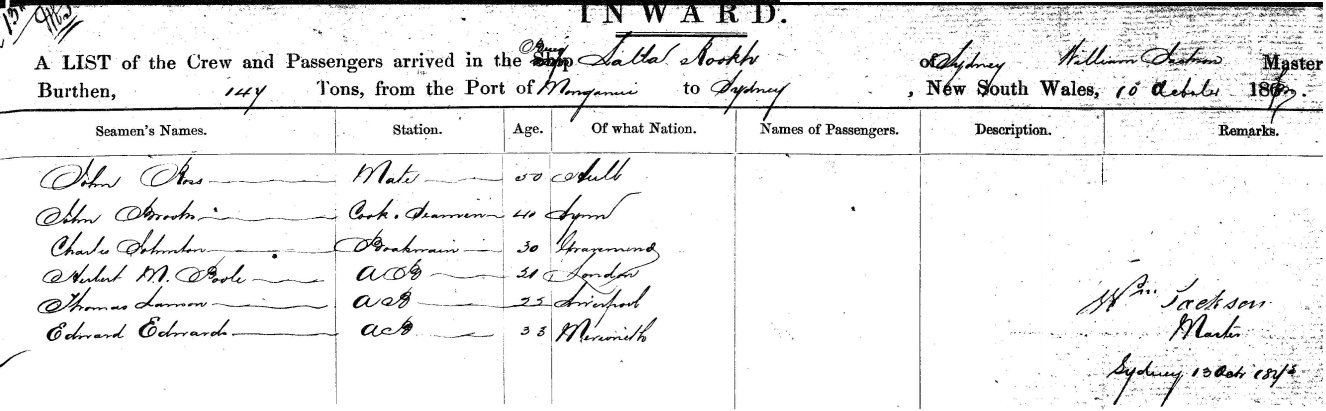 INWARD.
A LIST of the Crew and Passengers arrived in the Brig Lalla Rookh of Sydney William Master
Burthen, 147 Tons, from the Port of Monganui to Sydney , New South Wales, 186
Seamen's Names. Station. Age. Of what Nation. Names of Passengers. Description. Remarks.
John Ross Mate 50 Hull
John Brooks Cook & Seamen 40 Lynn
Charles Johnston 30 Gravesend
Herbert M. Poole AB London
Thomas Lawson AB 22 Liverpool
Edward Edwards AB 33 Merioneth
Wm. Jackson
Master
Sydney 13 Octr